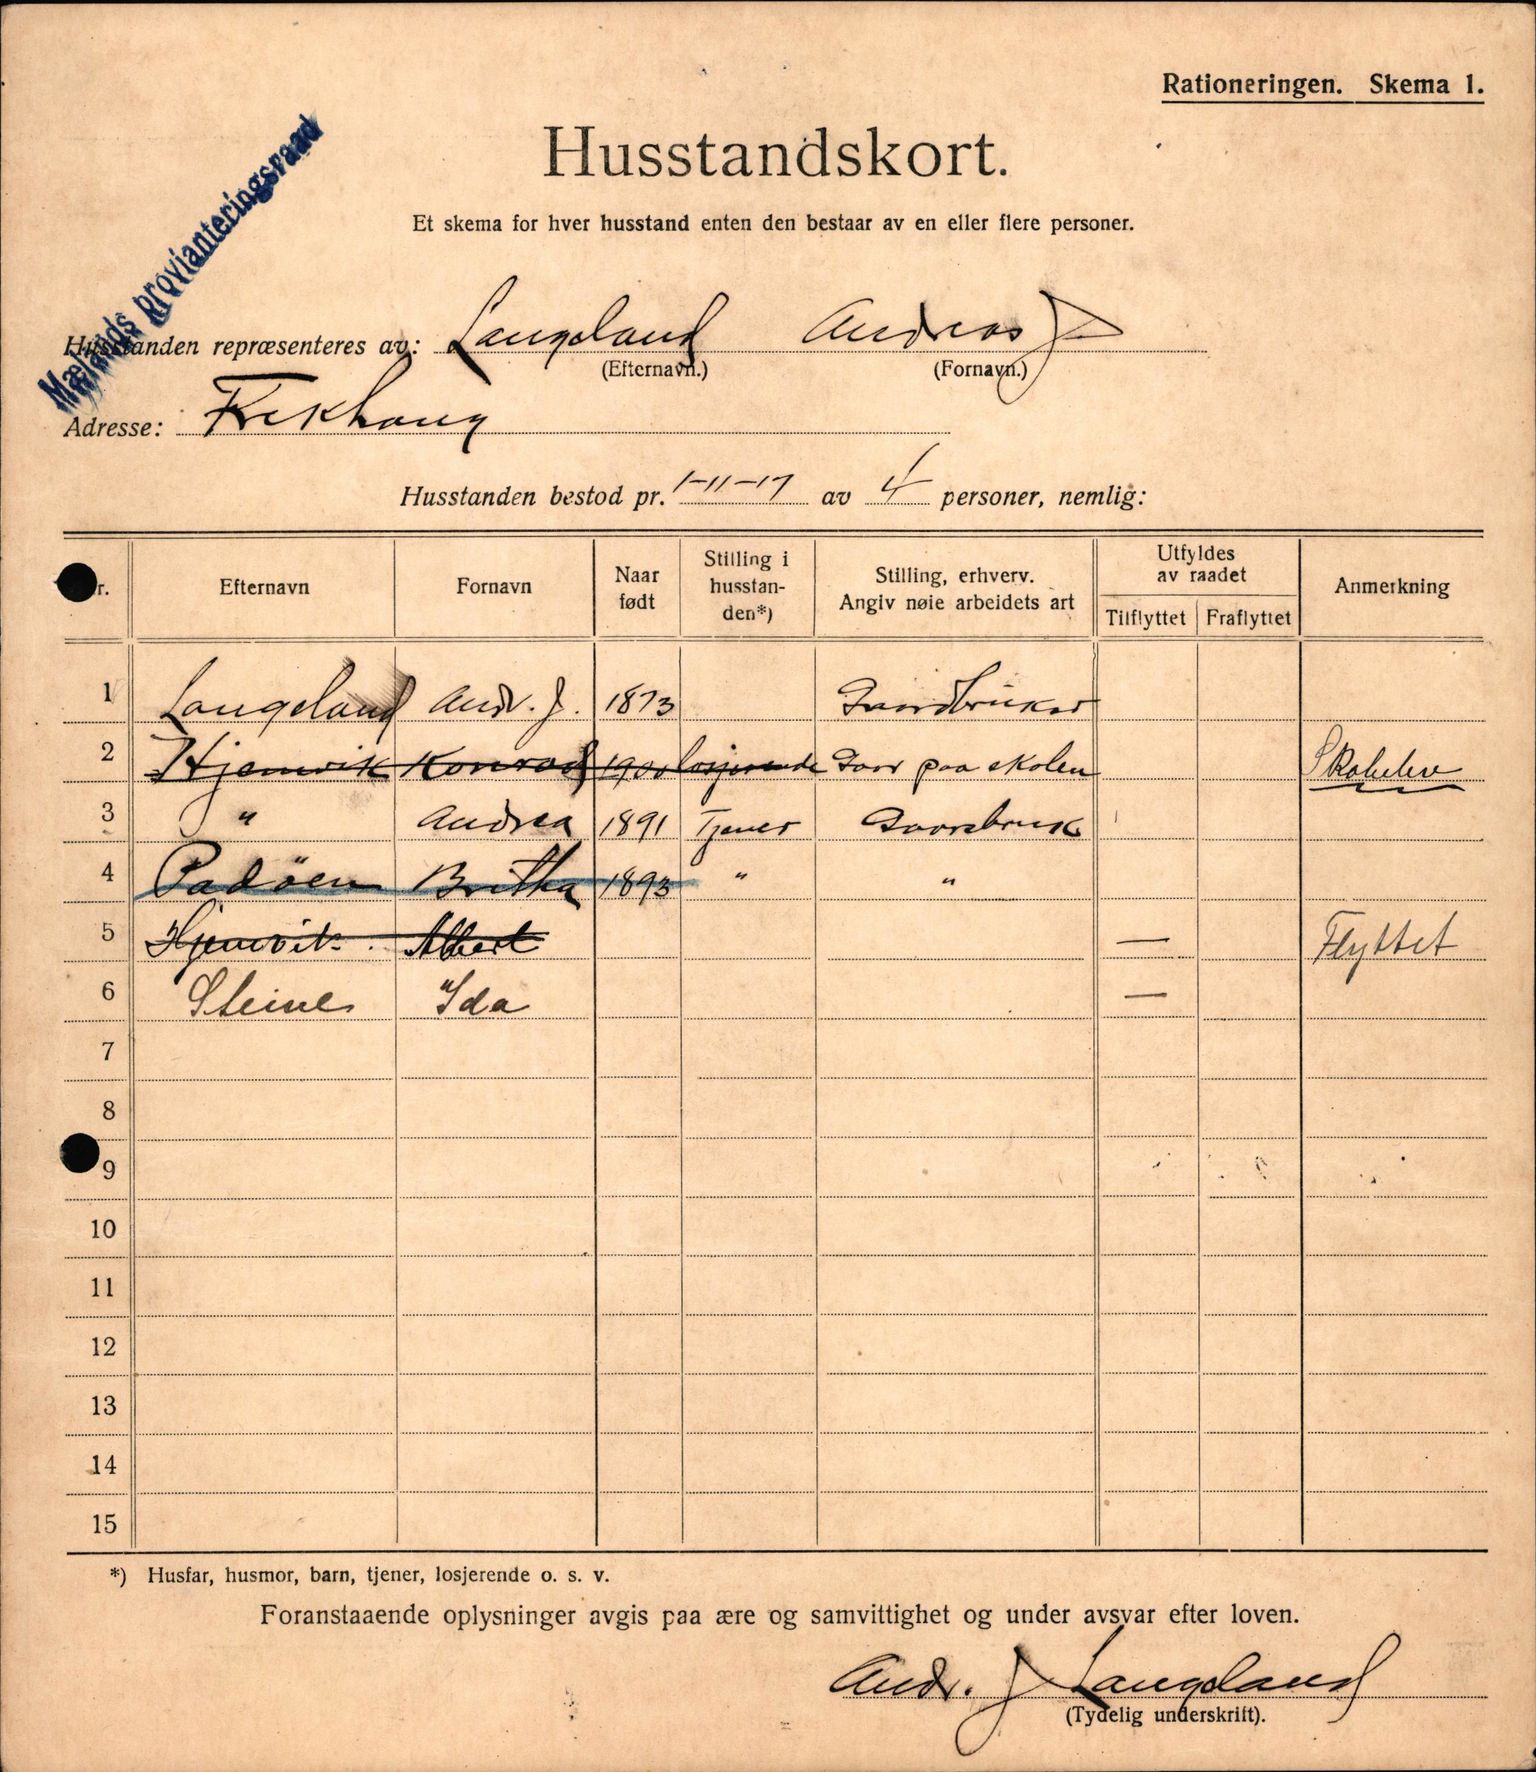 Rationeringen. Skema 1.
Husstandskort.
Et skema for hver husstand enten den bestaar av en eller flere personer.
Mælands provianteringsraad
Husstanden repræsenteres av: Langeland Andreas J
(Efternavn.) (Fornavn.)
Adresse: Frekhaug
Husstanden bestod pr. 1-11-17 av 4 personer, nemlig:
Nr. Efternavn Fornavn Naar født Stilling i husstan-den*) Stilling, erhverv. Angiv nøie arbeidets art Utfyldes av raadet Tilflyttet Fraflyttet Anmerkning
1 Langeland Andr. J. 1873 Gaardbruker
2 Hjemvik Konrad 1900 losjerende Gaar paa skolen Skoleelev
3 " Andrea 1891 Tjener Gaarsbruk
4 Padøen Britha 1893 " "
5 Hjemvik Albert — Flyttet
6 Steine Ida —
7
8
9
10
11
12
13
14
15
*) Husfar, husmor, barn, tjener, losjerende o. s. v.
Foranstaaende oplysninger avgis paa ære og samvittighet og under avsvar efter loven.
Andr. J Langeland
(Tydelig underskrift).